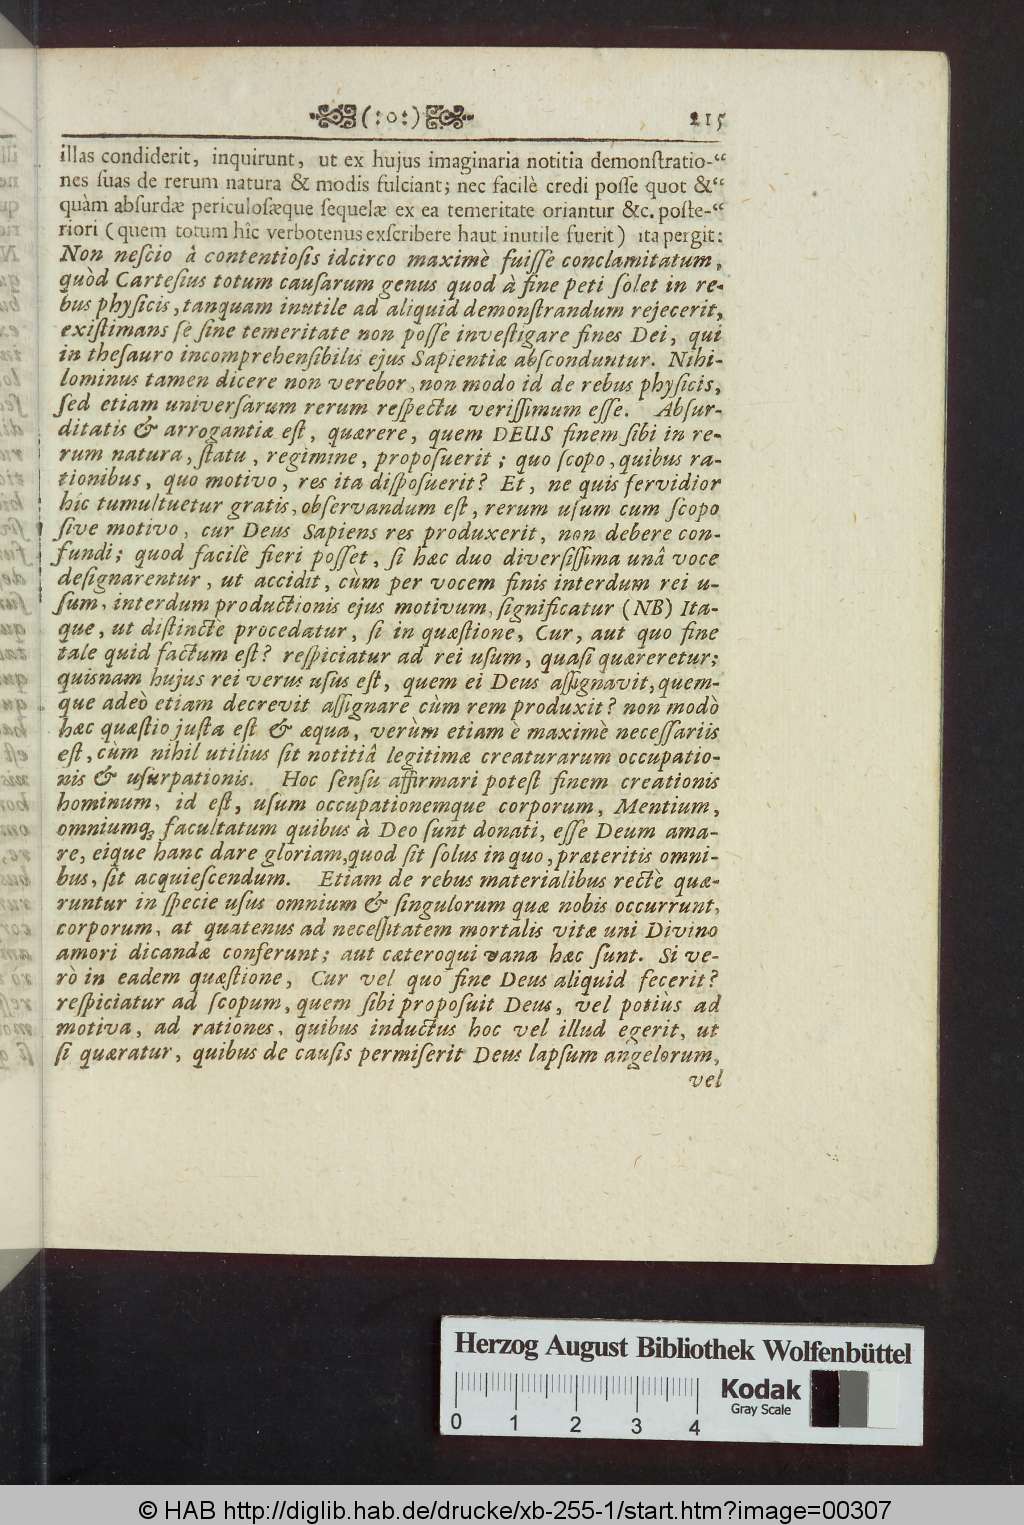 (:o:) 215
illas condiderit, inquirunt, ut ex hujus imaginaria notitia demonſtratio-“
nes ſuas de rerum natura & modis fulciant; nec facilè credi poſſe quot &“
quàm abſurdæ periculoſæque ſequelæ ex ea temeritate oriantur &c. poſte-“
riori (quem totum hîc verbotenus exſcribere haut inutile fuerit) ita pergit:
Non neſcio â contentioſis idcirco maximè fuiſſe conclamitatum,
quòd Carteſius totum cauſarum genus quod à fine peti ſolet in re-
bus phyſicis, tanquam inutile ad aliquid demonſtrandum rejecerit,
exiſtimans ſe ſine temeritate non poſſe inveſtigare fines Dei, qui
in theſauro incomprehenſibilis ejus Sapientiæ abſconduntur. Nihi-
lominus tamen dicere non verebor, non modo id de rebus phyſicis,
ſed etiam univerſarum rerum reſpectu veriſſimum eſſe. Abſur-
ditatis & arrogantiæ eſt, quærere, quem DEUS finem ſibi in re-
rum natura, ſtatu, regimine, propoſuerit; quo ſcopo, quibus ra-
tionibus, quo motivo, res ita diſpoſuerit? Et, ne quis fervidior
hîc tumultuetur gratis, obſervandum eſt, rerum uſum cum ſcopo
ſive motivo, cur Deus Sapiens res produxerit, non debere con-
fundi; quod facilè fieri poſſet, ſi hæc duo diverſiſſima unâ voce
deſignarentur, ut accidit, cùm per vocem finis interdum rei u-
ſum, interdum productionis ejus motivum, ſignificatur (NB) Ita-
que, ut diſtincte procedatur, ſi in quæſtione, Cur, aut quo fine
tale quid factum eſt? reſpiciatur ad rei uſum, quaſi quæreretur;
quisnam hujus rei verus uſus eſt, quem ei Deus aſſignavit, quem-
que adeò etiam decrevit aſſignare cùm rem produxit? non modò
hæc quæſtio juſta eſt & æqua, verùm etiam è maximè neceſſariis
eſt, cùm nihil utilius ſit notitiâ legitimæ creaturarum occupatio-
nis & uſurpationis. Hoc ſenſu affirmari poteſt finem creationis
hominum, id eſt, uſum occupationemque corporum, Mentium,
omniumq; facultatum quibus à Deo ſunt donati, eſſe Deum ama-
re, eique hanc dare gloriam, quod ſit ſolus in quo, præteritis omni-
bus, ſit acquieſcendum. Etiam de rebus materialibus rectè quæ-
runtur in ſpecie uſus omnium & ſingulorum quæ nobis occurrunt,
corporum, at quatenus ad neceſſitatem mortalis vitæ uni Divino
amori dicandæ conferunt; aut cæteroqui vana hæc ſunt. Si ve-
rò in eadem quæſtione, Cur vel quo fine Deus aliquid fecerit?
reſpiciatur ad ſcopum, quem ſibi propoſuit Deus, vel potius ad
motiva, ad rationes, quibus inductus hoc vel illud egerit, ut
ſi quæratur, quibus de cauſis permiſerit Deus lapſum angelorum,
vel
Herzog August Bibliothek Wolfenbüttel
0 1 2 3 4
Kodak
Gray Scale
© HAB http://diglib.hab.de/drucke/xb-255-1/start.htm?image=00307